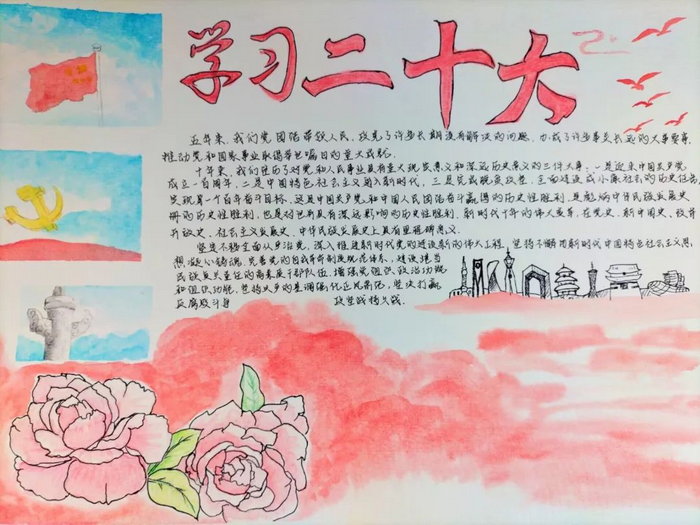 学习二十大
五年来,我们党团结带领人民,攻克了许多长期没有解决的问题,办成了许多事关长远的大事要事,
推动党和国家事业取得举世瞩目的重大成就。
十年来,我们经历了对党和人民事业具有重大现实意义和深远历史意义的三件大事:一是迎来中国共产党
成立一百周年,二是中国特色社会主义进入新时代,三是完成脱贫攻坚、全面建成小康社会的历史任务,
实现第一个百年奋斗目标。这是中国共产党和中国人民团结奋斗赢得的历史性胜利,是彪炳中华民族发展史
册的历史性胜利,也是对世界具有深远影响的历史性胜利。新时代十年的伟大变革,在党史、新中国史、改革
开放史、社会主义发展史、中华民族发展史上具有里程碑意义。
坚定不移全面从严治党,深入推进新时代党的建设新的伟大工程。坚持不懈用新时代中国特色社会主义思
想凝心铸魂,完善党的自我革命制度规范体系,建设堪当
民族复兴重任的高素质干部队伍,增强党组织政治功能
和组织功能,坚持以严的基调强化正风肃纪,坚决打赢
反腐败斗争 攻坚战持久战。